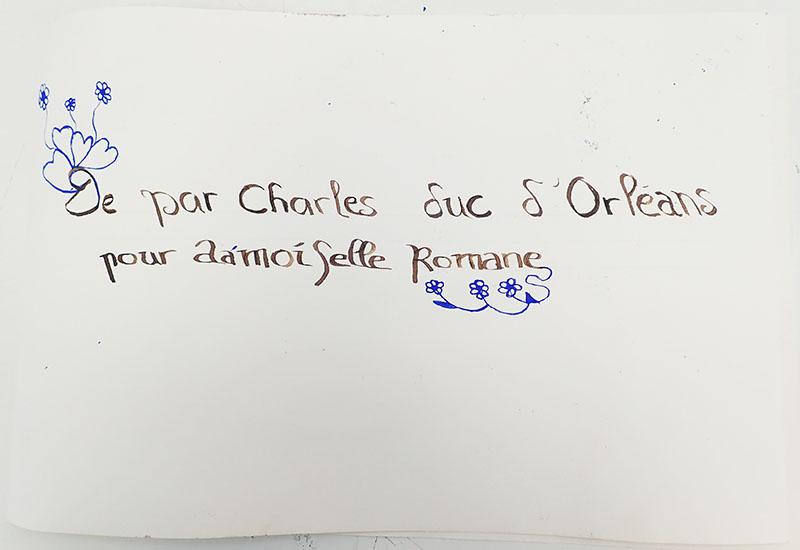 De par Charles duc d'Orléans
pour damoiselle Romane